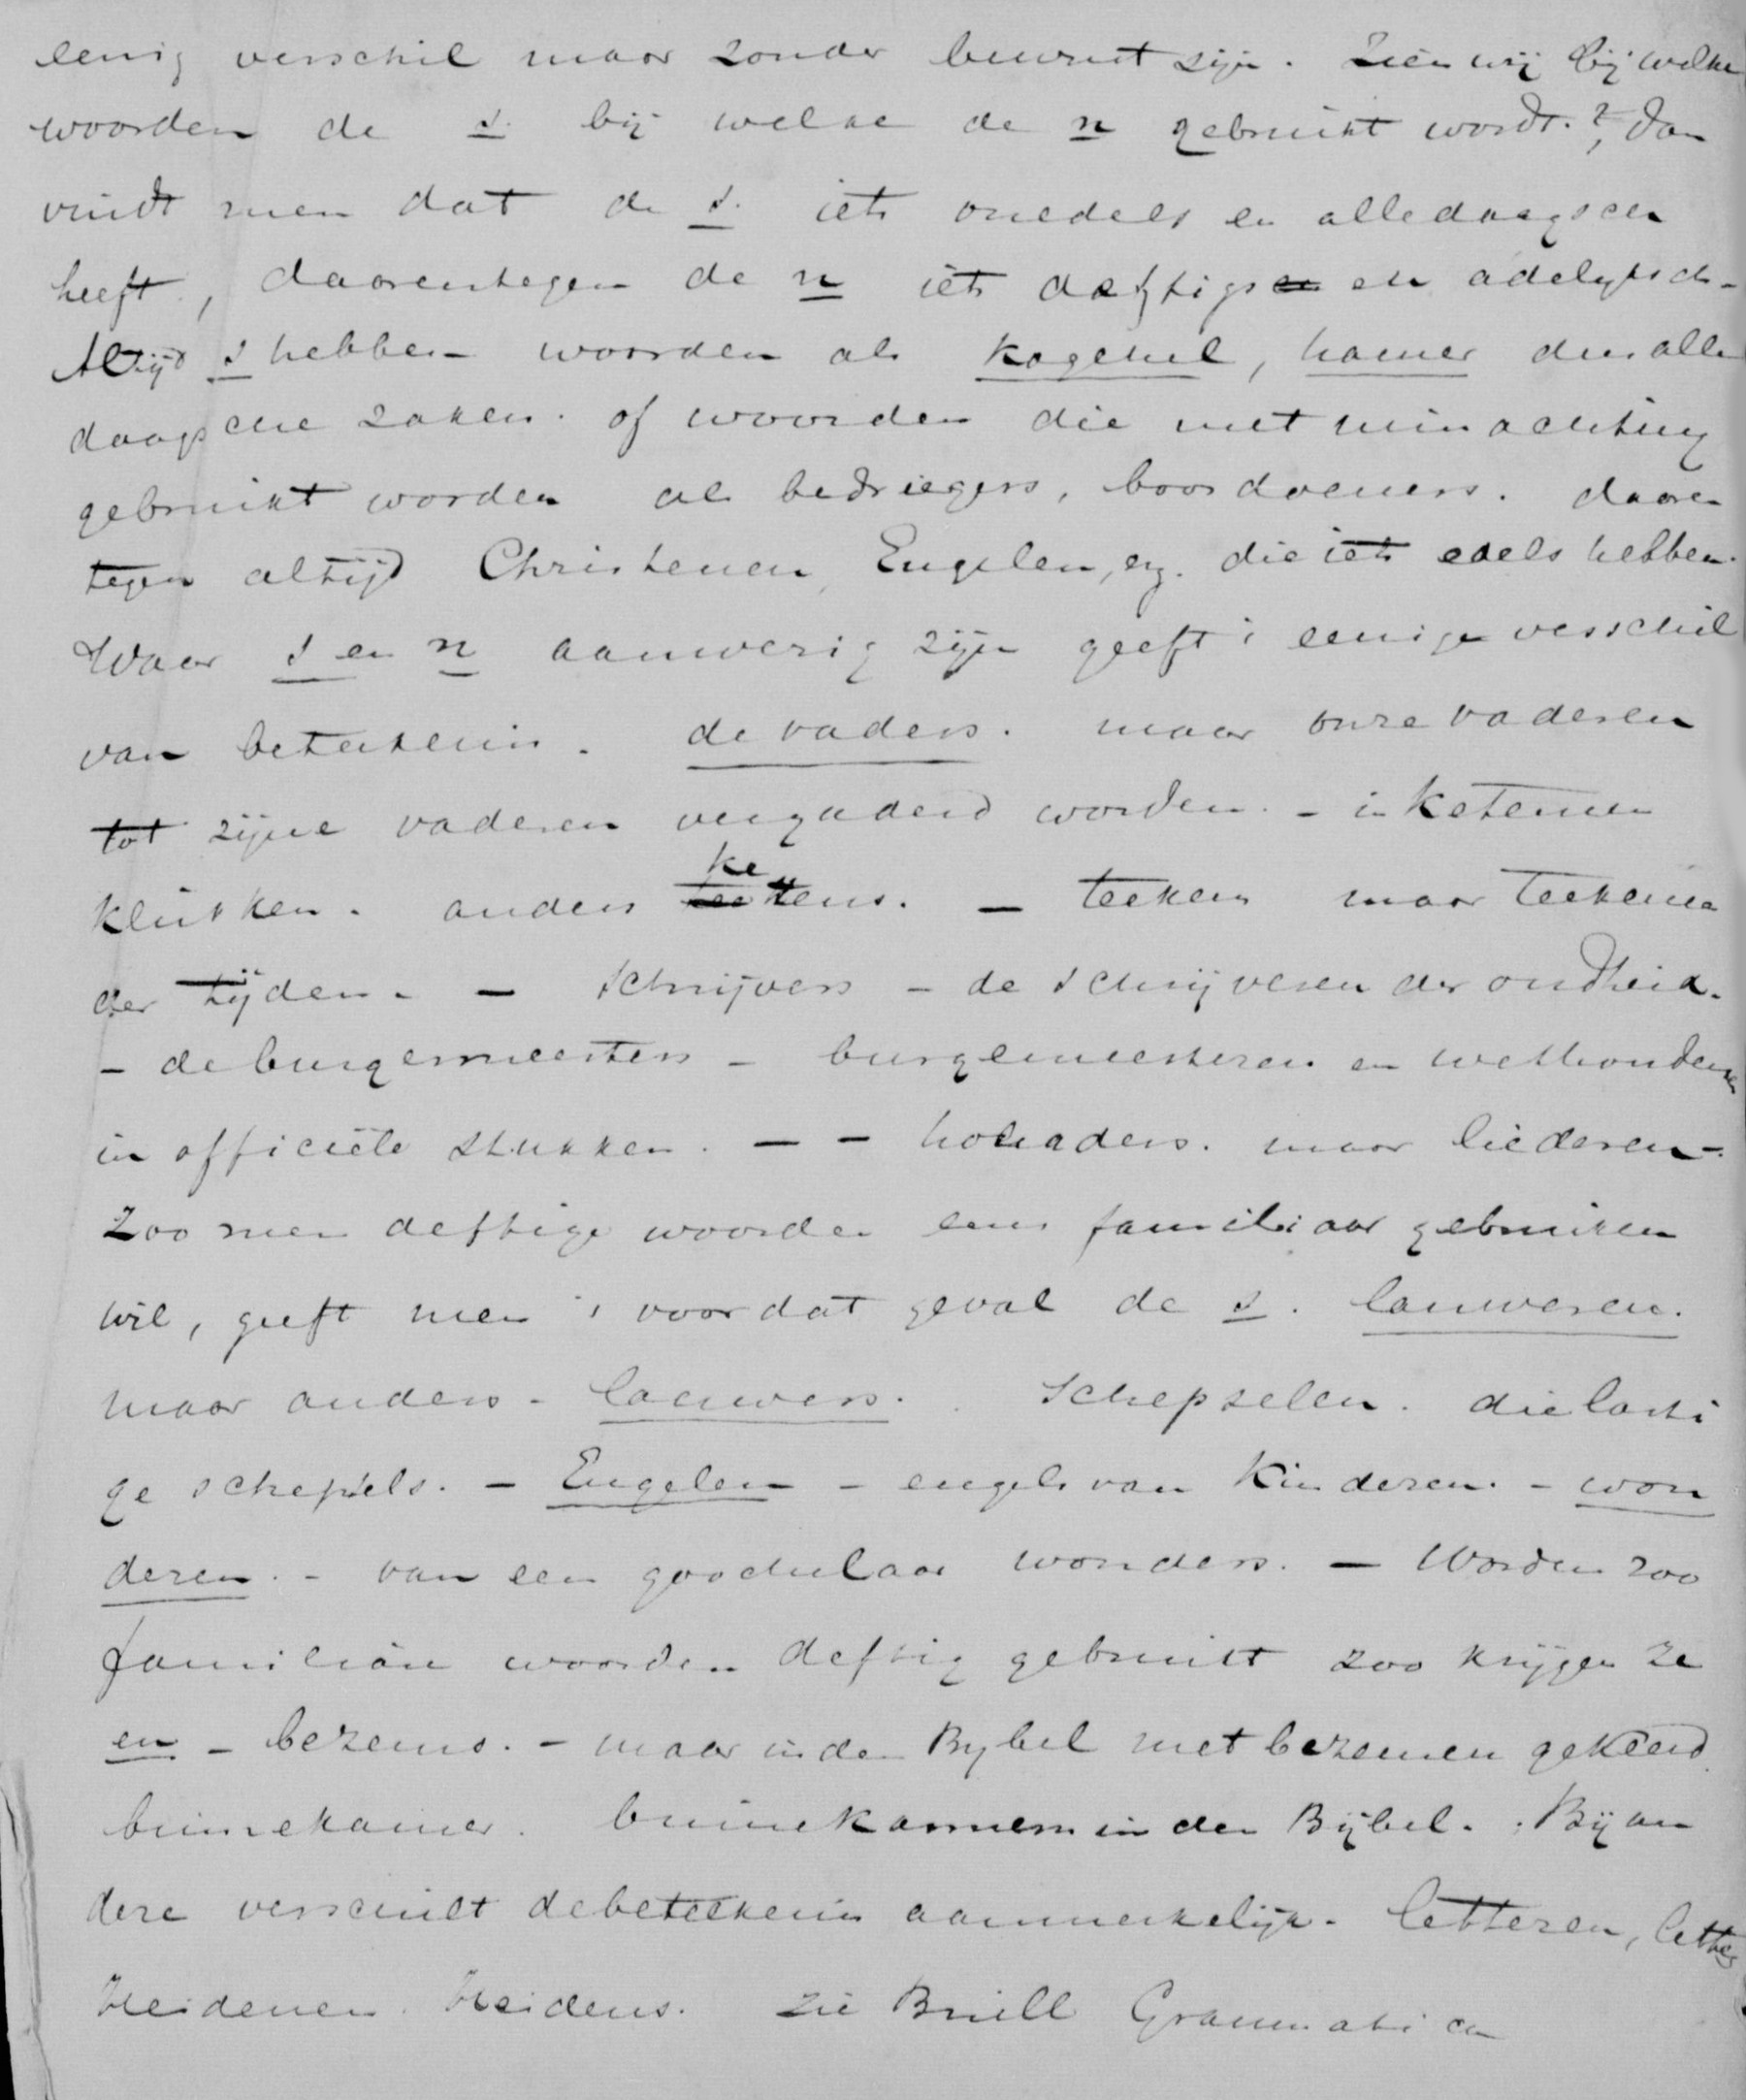 eenig verschil maar zonder bewust zijn. Zien wij bij welke
woorden de s. bij welke de n gebruikt wordt.?, dan
vindt men dat de s. iets onedels en alledaagscen
heeft, daarentegen de n iets deftigs en adelijksch-
Altijd s hebben woorden als kogchel, hamer dus alle
daagsche zaken. of woorden die met minachting
gebruikt worden als bedriegers, boosdoeners. daaren
tegen altijd Christenen, Engelen, enz. die iets edels hebben.
Waar s en n aanwezig zijn geeft 's eenige verschil
van beteekenis. de vaders. maar onze vaderen
tot zijne vaderen vergaderd worden. - in Ketenen
klinken. anders ketens. - teekens maar teekenen
der tijden. - schrijvers - de schrijveren der oudheid.
- de burgemeesters - burgemeesteren en wethouderen
in officiële stukken. - - hohaders. maar liederen-.
Zoo men deftige woorden eens familiaar gebruiken
wil, geeft men 's voor dat geval de s. lauweren.
maar anders - lauwers. Schepselen. die lasti
ge schepsels. - Engelen - engels van Kinderen. - won
deren. - van een goochelaar wonders. - Worden zoo
familiare woorden deftig gebruikt zoo krijgen ze
en - bezems. - maar in den Bybel met bezemen gekeerd
binnekamer. binnekameren in den Bijbel. Bij an
dere verschilt de beteekenis aanmerkelijk. letteren, letters
Heidenen. Heidens. zie Brill Grammatica